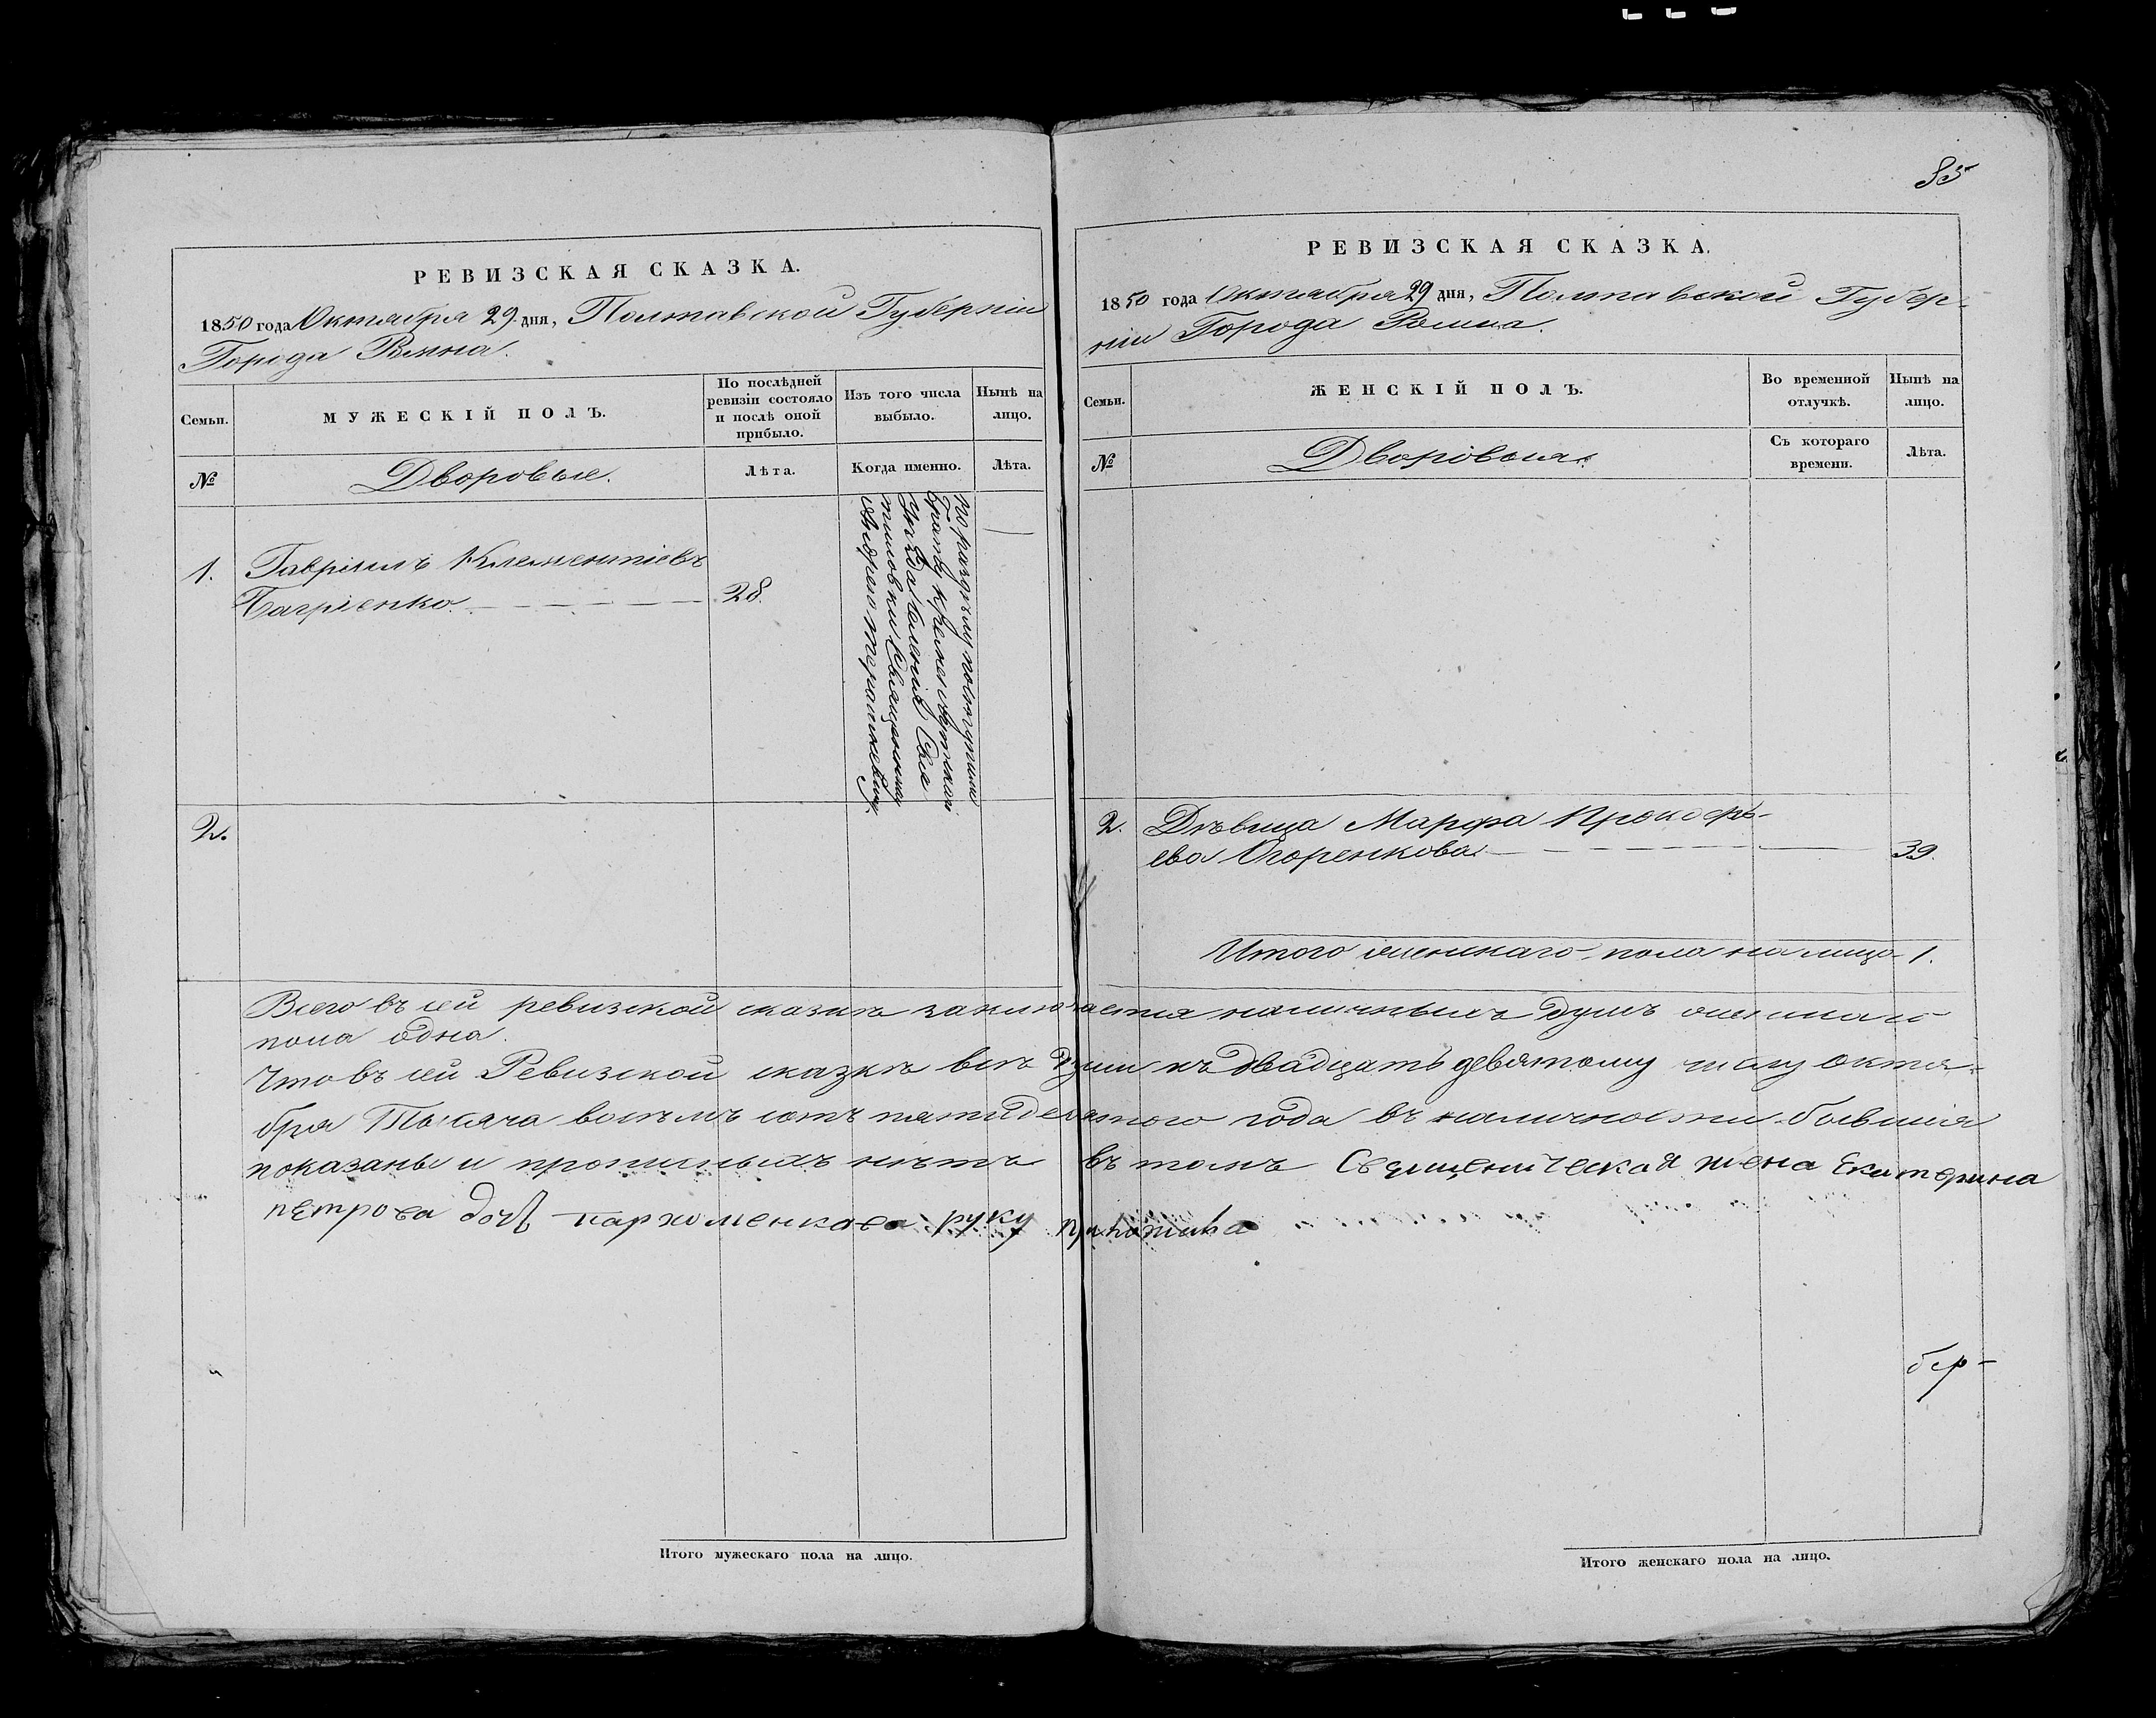 85
РЕВИЗСКАЯ СКАЗКА.
1850 года Октября 29 дня, Полтавской Губерніи
Города Ромна.
Семьи.
МУЖЕСКІЙ ПОЛЪ.
По послѣдней
ревизіи состояло
и послѣ оной
прибыло.
Изъ того числа
выбыло.
Нынѣ на
лицо.
№
Дворовые.
Лѣта.
Когда именно.
Лѣта.
1.
Гавріилъ Клементіевъ
Багріенко.
28.
по раздѣлу поступилъ
брату
уѣзда селенія
Священнику
Андрею
2.
РЕВИЗСКАЯ СКАЗКА.
1850 года Октября 29 дня, Полтавской Губер-
ніи Города Ромна.
Семьи.
ЖЕНСКІЙ ПОЛЪ.
Во временной
отлучкѣ.
Нынѣ на
лицо.
№
Дворовыя.
Съ котораго
времени.
Лѣта.
2. Дѣвица Марфа Прокофь-
ева Огоренкова 39.
Итого женскаго пола на лицо 1.
Всего въ сей ревизской сказкѣ заключается наличныхъ душъ женскаго
пола одна.
Что въ сей Ревизской сказкѣ всѣ души къ двадцать девятому числу Октя-
бря Тысяча восемъ сотъ пятидесятого года въ наличности бывшія
показаны и прописныхъ нѣтъ въ томъ Священическая жена Екатерина
петрова дочь пархоменкова руку приложила
Итого мужескаго пола на лицо.
Итого женскаго пола на лицо.